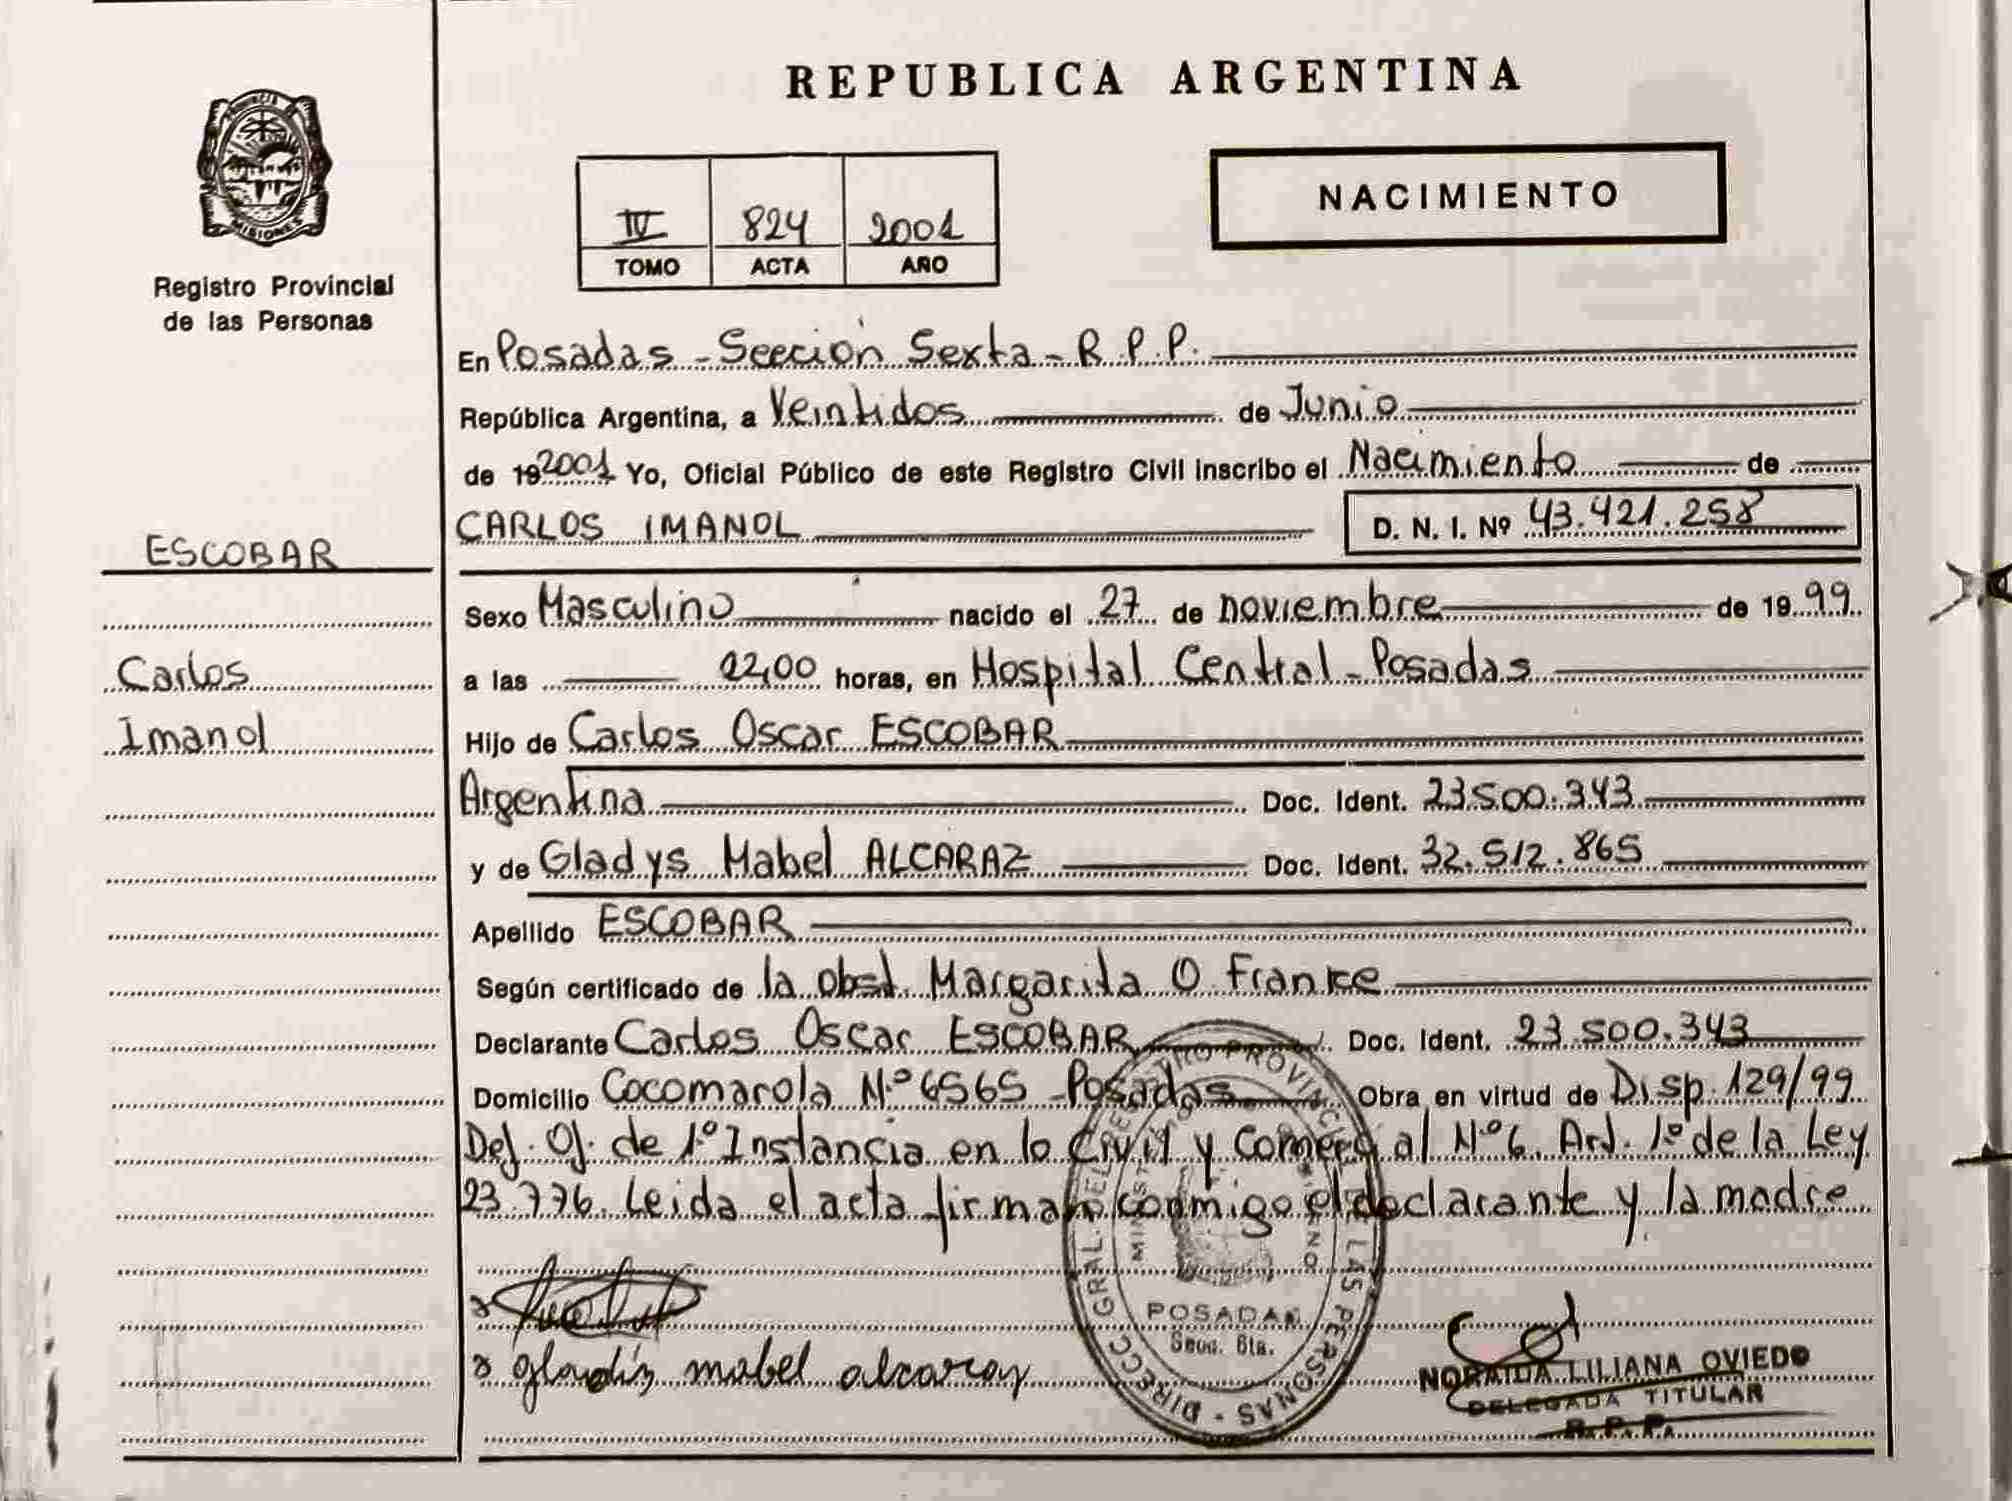 REPUBLICA ARGENTINA
PROVINCIA DE
MISIONES
Registro Provincial
de las Personas
IV 824 2001
TOMO ACTA AÑO
NACIMIENTO
En Posadas - Sección Sexta - R.P.P.
República Argentina, a Veintidos de Junio
de 19 2001 Yo, Oficial Público de este Registro Civil inscribo el Nacimiento de
CARLOS IMANOL D. N. I. Nº 43.421.258
ESCOBAR
Carlos
Imanol
Sexo Masculino nacido el 27 de noviembre de 19 99
a las 22,00 horas, en Hospital Central - Posadas
Hijo de Carlos Oscar ESCOBAR
Argentina Doc. Ident. 23.500.343
y de Gladys Mabel ALCARAZ Doc. Ident. 32.512.865
Apellido ESCOBAR
Según certificado de la obst. Margarita O Franke
Declarante Carlos Oscar ESCOBAR Doc. Ident. 23.500.343
Domicilio Cocomarola N.º 6565 - Posadas Obra en virtud de Disp. 129/99
Def. Of. de 1.º Instancia en lo Civil y Comerc al N.º 6. Art. 1º de la Ley
23.776. Leida el acta firman conmigo el declarante y la madre
gladis mabel alcaraz
POSADAS
Secc. 6ta.
NORAIDA LILIANA OVIEDO
DELEGADA TITULAR
R.P.P.